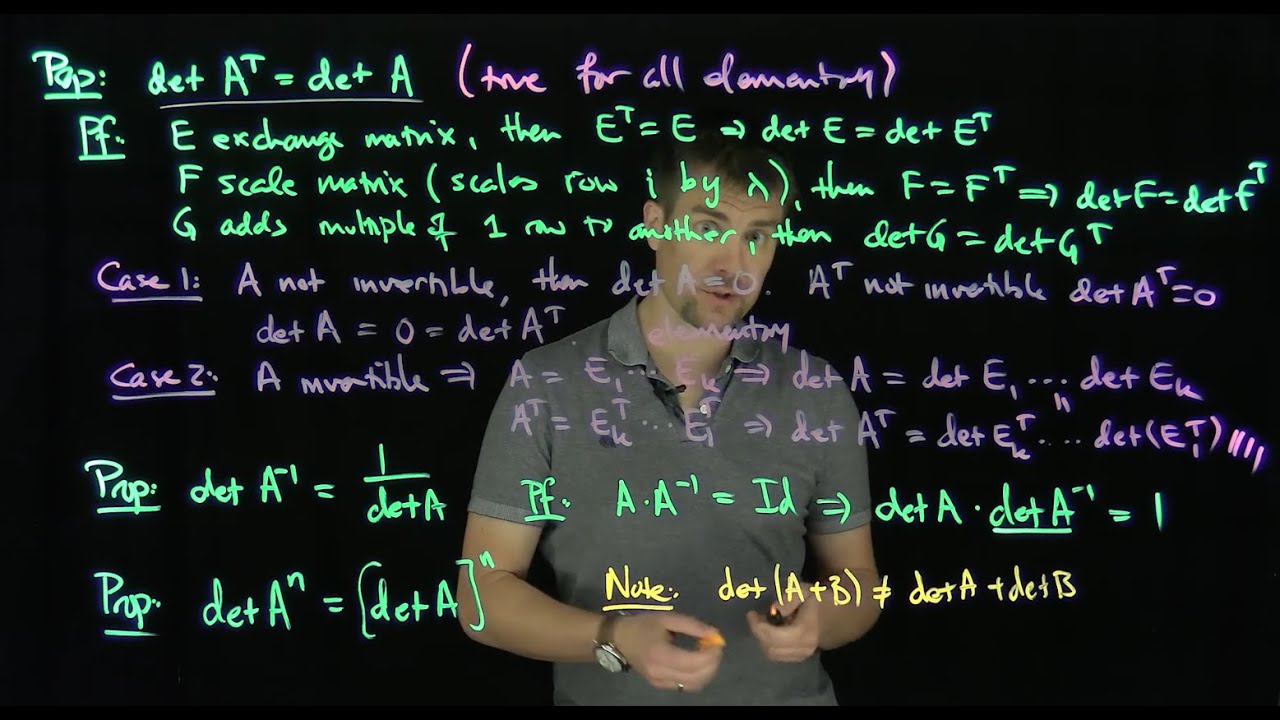 Prop: det Aᵀ = det A (true for all elementary)
Pf: E exchange matrix, then Eᵀ = E ⇒ det E = det Eᵀ
F scale matrix (scales row i by λ), then F = Fᵀ ⇒ det F = det Fᵀ
G adds multiple of 1 row to another, then det G = det Gᵀ
Case 1: A not invertible, then det A = 0. Aᵀ not invertible det Aᵀ = 0
det A = 0 = det Aᵀ. elementary
Case 2: A invertible ⇒ A = E₁ ⋯ Eₖ ⇒ det A = det E₁ ⋯ det Eₖ
Aᵀ = Eₖᵀ ⋯ E₁ᵀ ⇒ det Aᵀ = det Eₖᵀ ⋯ det(E₁ᵀ) ////
Prop: det A⁻¹ = 1/det A Pf: A · A⁻¹ = Id ⇒ det A · det A⁻¹ = 1
Prop: det Aⁿ = [det A]ⁿ Note: det (A+B) ≠ det A + det B